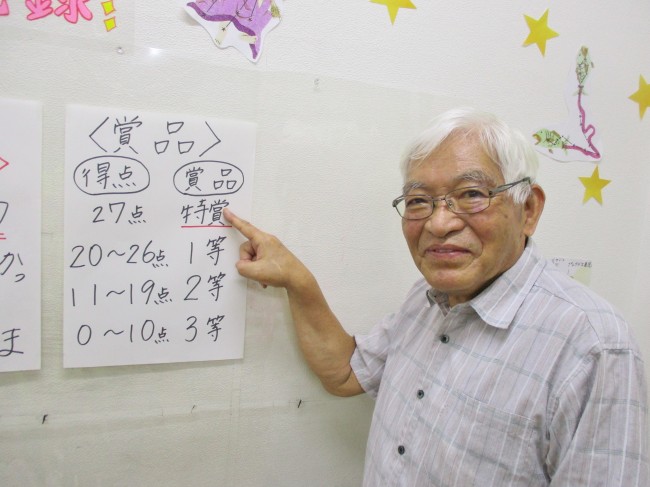 録!
〈賞品〉
得点 賞品
27点 特賞
20〜26点 1等
11〜19点 2等
0〜10点 3等
かっ
ま